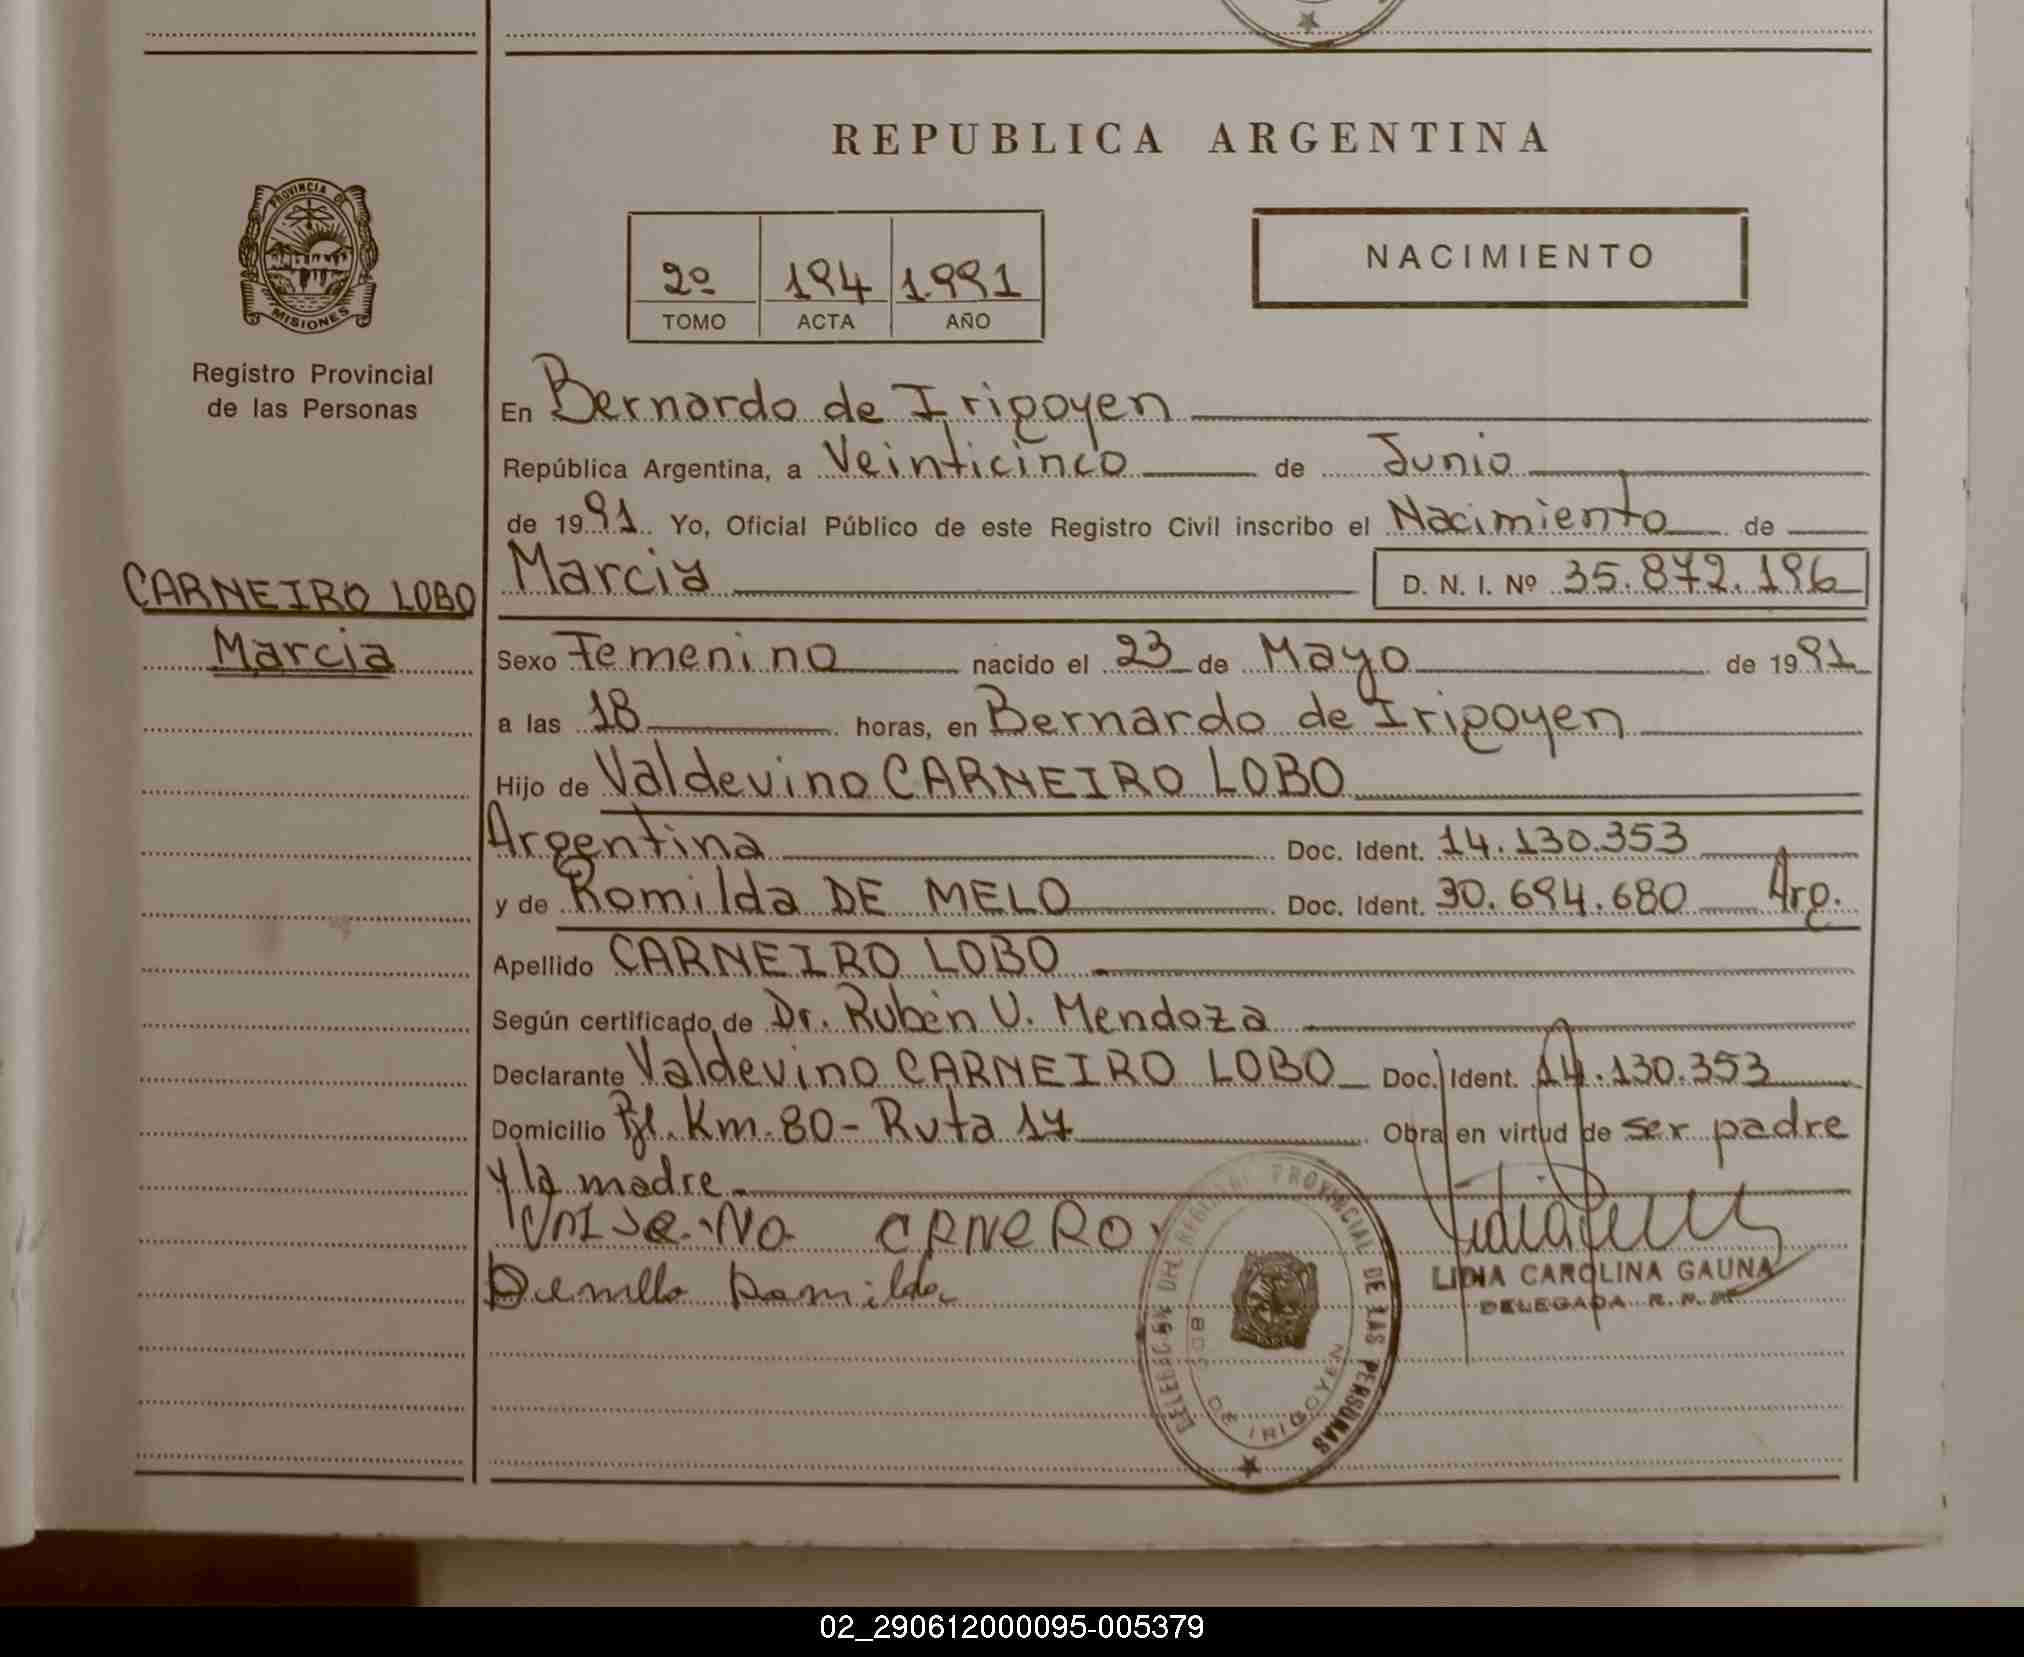 REPUBLICA ARGENTINA
PROVINCIA DE
MISIONES
Registro Provincial
de las Personas
CARNEIRO LOBO
Marcia
2º 194 1.991
TOMO ACTA AÑO
NACIMIENTO
En Bernardo de Irigoyen
República Argentina, a Veinticinco de Junio
de 1991 Yo, Oficial Público de este Registro Civil inscribo el Nacimiento de
Marcia D. N. I. Nº 35.872.196
Sexo Femenino nacido el 23 de Mayo de 1991
a las 18 horas, en Bernardo de Irigoyen
Hijo de Valdevino CARNEIRO LOBO
Argentina Doc. Ident. 14.130.353
y de Romilda DE MELO Doc. Ident. 30.694.680 Arg.
Apellido CARNEIRO LOBO
Según certificado de Dr. Rubén U. Mendoza
Declarante Valdevino CARNEIRO LOBO Doc. Ident. 14.130.353
Domicilio Pje. Km. 80 - Ruta 17 Obra en virtud de ser padre
y la madre
CRNERO
LIDIA CAROLINA GAUNA
DELEGADA R. P. P.
DELEGACION DEL REGISTRO PROVINCIAL DE LAS PERSONAS
DE IRIGOYEN
02_290612000095-005379